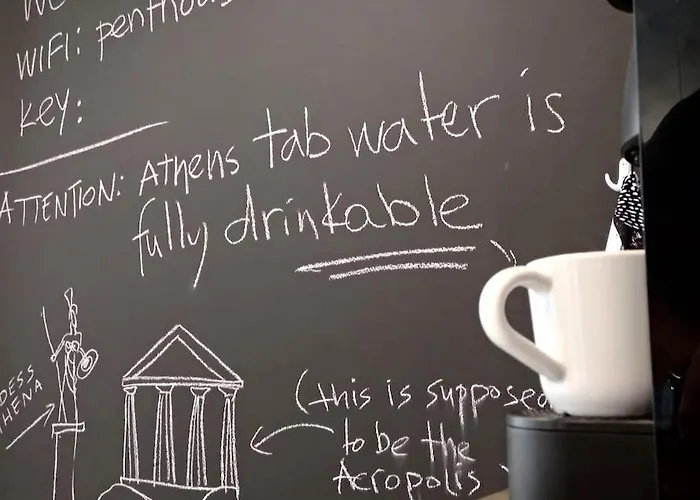 WIFI:
KEY:
ATTENTION: Athens tab water is
fully drinkable
(this is supposed
to be the
Acropolis